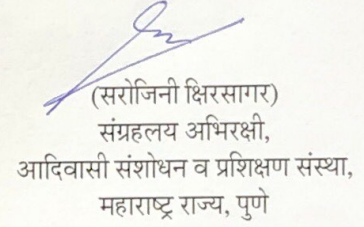 (सरोजिनी क्षिरसागर)
संग्रहलय अभिरक्षी,
आदिवासी संशोधन व प्रशिक्षण संस्था,
महाराष्ट्र राज्य, पुणे